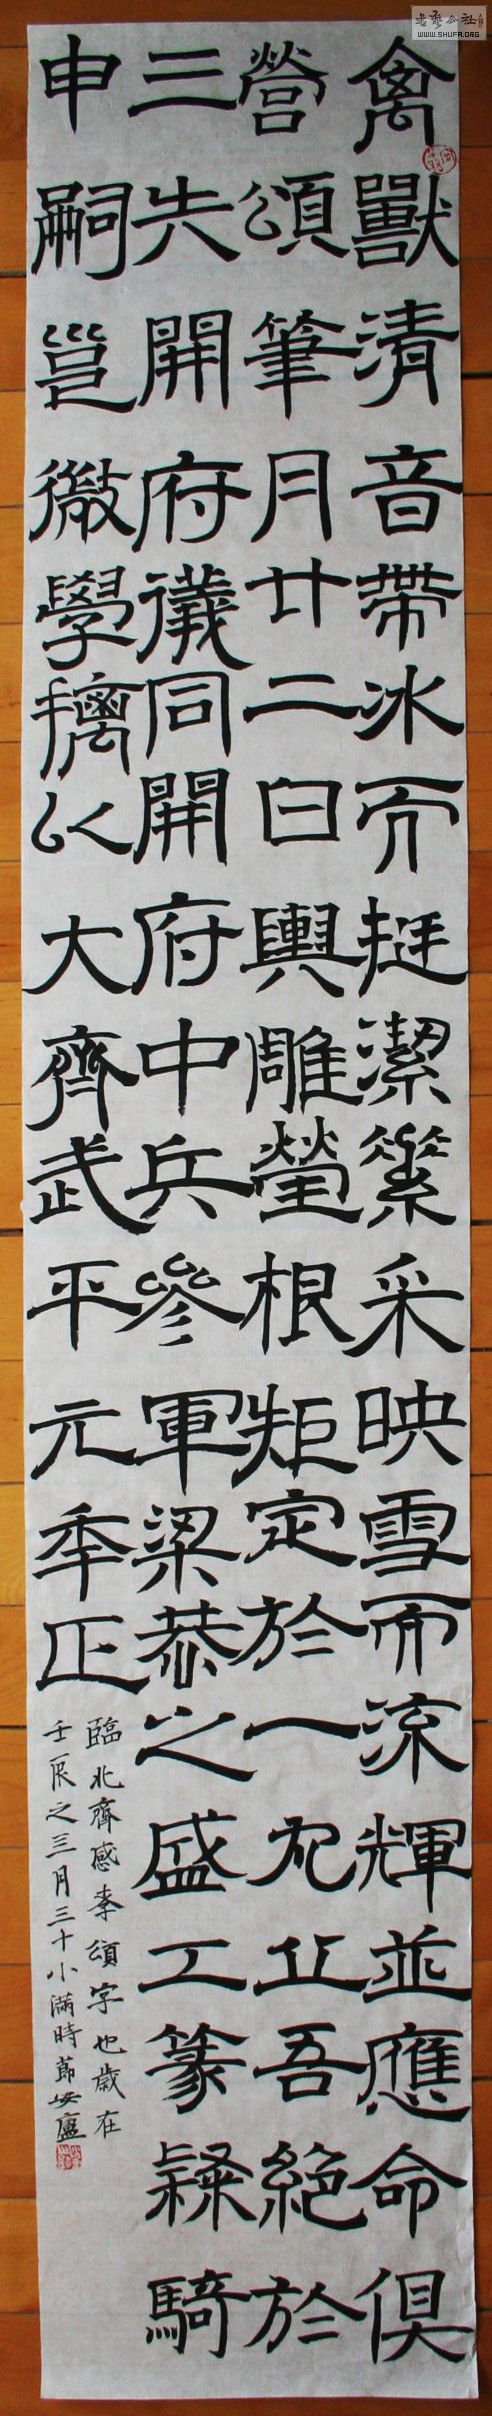 禽獸清音帶冰而挺潔采映雪而涼輝並應命俱
營頌筆月廿二日輿雕瑩根矩定於一止吾絶於
三失開府儀同開府中兵參軍梁恭之盛工篆隸騎
申嗣邕微學摛以大齊武平元年正
臨北齊感孝頌字也歲在
壬辰之三月三十小滿時節安廬
書藝公社
WWW.SHUFA.ORG